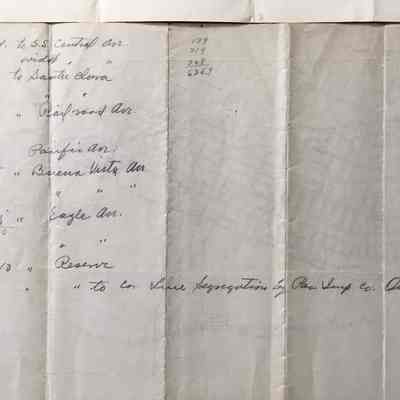 to S.S. Central Av.
" "
to Santa Clara
" "
" Railroad Av.
Pacific Av.
" Buena Vista Av.
" " "
" Eagle Av.
" "
" Reserve
" " to Co. Line Segregation by Pac Imp Co.
179
219
248